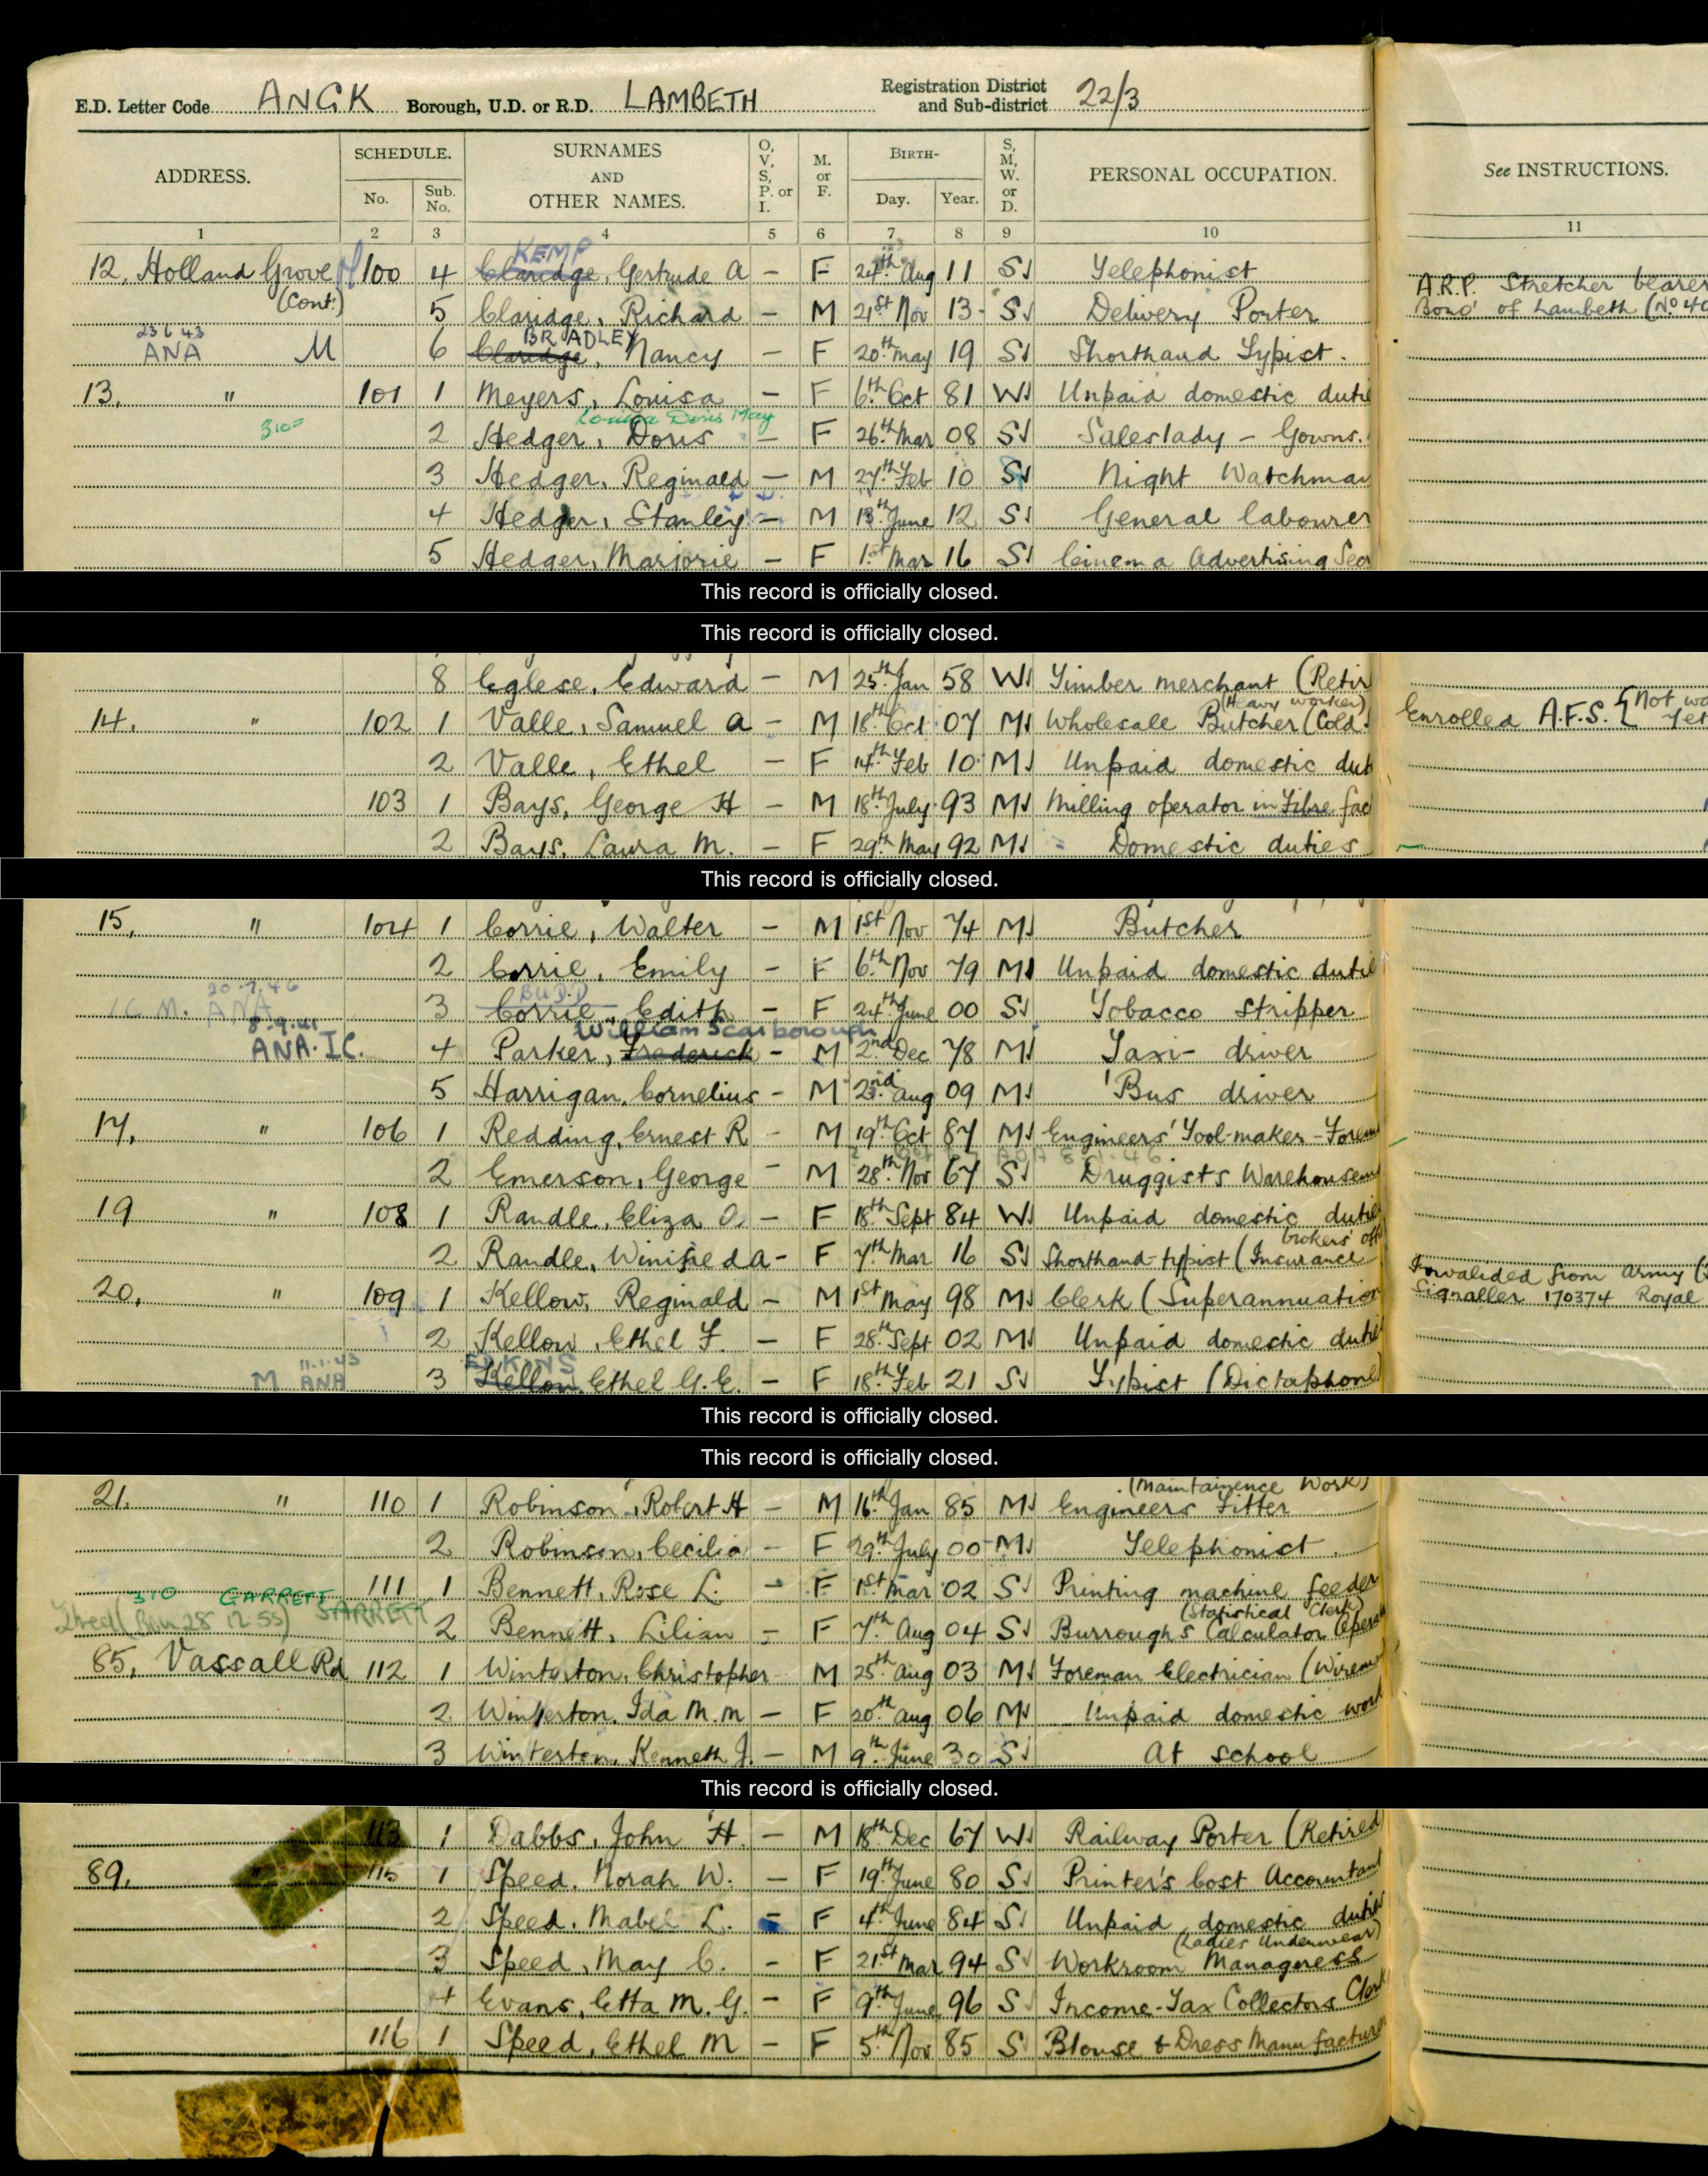 E.D. Letter Code ANGK Borough, U.D. or R.D. LAMBETH Registration District and Sub-district 22/3
ADDRESS. SCHEDULE. No. Sub. No. SURNAMES AND OTHER NAMES. O, V, S, P. or I. M. or F. BIRTH- Day. Year. S, M, W. or D. PERSONAL OCCUPATION. See INSTRUCTIONS.
1 2 3 4 5 6 7 8 9 10 11
KEMP
12, Holland Grove 100 4 Claridge, Gertrude A – F 24th Aug 11 S Telephonist
(Cont:) A.R.P. Stretcher bearer
5 Claridge, Richard – M 21st Nov 13 S Delivery Porter Boro' of Lambeth (No 40
23 6 43 BRADLEY
ANA M 6 Claridge, Nancy – F 20th May 19 S Shorthand Typist.
13, " 101 1 Meyers, Louisa – F 6th Oct 81 W Unpaid domestic dutie
310 Louisa Doris May
2 Hedger, Doris – F 26th Mar 08 S Saleslady – Gowns.
3 Hedger, Reginald – M 27th Feb 10 S Night Watchman
4 Hedger, Stanley – M 13th June 12 S General labourer
5 Hedger, Marjorie – F 1st Mar 16 S Cinema Advertising Sec
This record is officially closed.
This record is officially closed.
8 Eglese, Edward – M 25th Jan 58 W Timber merchant (Retir
(Heavy worker)
14, " 102 1 Valle, Samuel A – M 18th Oct 07 M Wholesale Butcher (Cold Enrolled A.F.S. {Not wo yet
2 Valle, Ethel – F 14th Feb 10 M Unpaid domestic dut
103 1 Bays, George H – M 18th July 93 M Milling operator in Fibre fac
2 Bays, Laura M. – F 29th May 92 M Domestic duties
This record is officially closed.
15, " 104 1 Corrie, Walter – M 1st Nov 74 M Butcher
2 Corrie, Emily – F 6th Nov 79 M Unpaid domestic dutie
20.7.46 BUDD
M. ANA 3 Corrie, Edith – F 24th June 00 S Tobacco stripper
8.9.41 William Scarborough
ANA. IC. 4 Parker, Frederick – M 2nd Dec 78 M Taxi-driver
5 Harrigan, Cornelius – M 2nd Aug 09 M 'Bus driver
17, " 106 1 Redding, Ernest R – M 19th Oct 87 M Engineers' Tool-maker – Forem
2 Emerson, George – M 28th Nov 67 S Druggists Warehousem
19 " 108 1 Randle, Eliza O. – F 18th Sept 84 W Unpaid domestic dutie
brokers' off
2 Randle, Winifred A – F 7th Mar 16 S Shorthand-typist (Insurance
Invalided from Army (
20, " 109 1 Kellow, Reginald – M 1st May 98 M Clerk (Superannuation Signaller 170374 Royal
2 Kellow, Ethel F. – F 28th Sept 02 M Unpaid domestic dutie
11.1.43 EDKINS
M ANA 3 Kellow, Ethel G.E. – F 18th Feb 21 S Typist (Dictaphone)
This record is officially closed.
This record is officially closed.
(Maintainence Work)
21, " 110 1 Robinson, Robert H – M 16th Jan 85 M Engineers Fitter
2 Robinson, Cecilia – F 29th July 00 M Telephonist.
111 1 Bennett, Rose L. – F 1st Mar 02 S Printing machine feeder
310 GARRETT (Statistical Clerk)
28 12 55) GARRETT 2 Bennett, Lilian – F 7th Aug 04 S Burroughs Calculator Opera
85, Vassall Rd 112 1 Winterton, Christopher M 25th Aug 03 M Foreman Electrician (Wirem
2 Winterton, Ida M.M – F 20th Aug 06 M Unpaid domestic work
3 Winterton, Kenneth J. – M 9th June 30 S At school
This record is officially closed.
113 1 Dabbs, John H. – M 18th Dec 67 W Railway Porter (Retired
89, " 115 1 Speed, Norah W. – F 19th June 80 S Printer's Cost Accountant
2 Speed, Mabel L. – F 4th June 84 S Unpaid domestic dutie
(Ladies Underwear)
3 Speed, May C. – F 21st Mar 94 S Workroom Manageress
4 Evans, Etta M.G. – F 9th June 96 S Income-Tax Collectors Clerk
116 1 Speed, Ethel M – F 5th Nov 85 S Blouse & Dress Manufacture